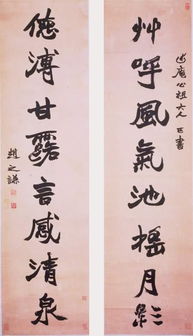 大人 正書
艸呼風氣池搖月影
德溥甘露言感清泉
趙之謙